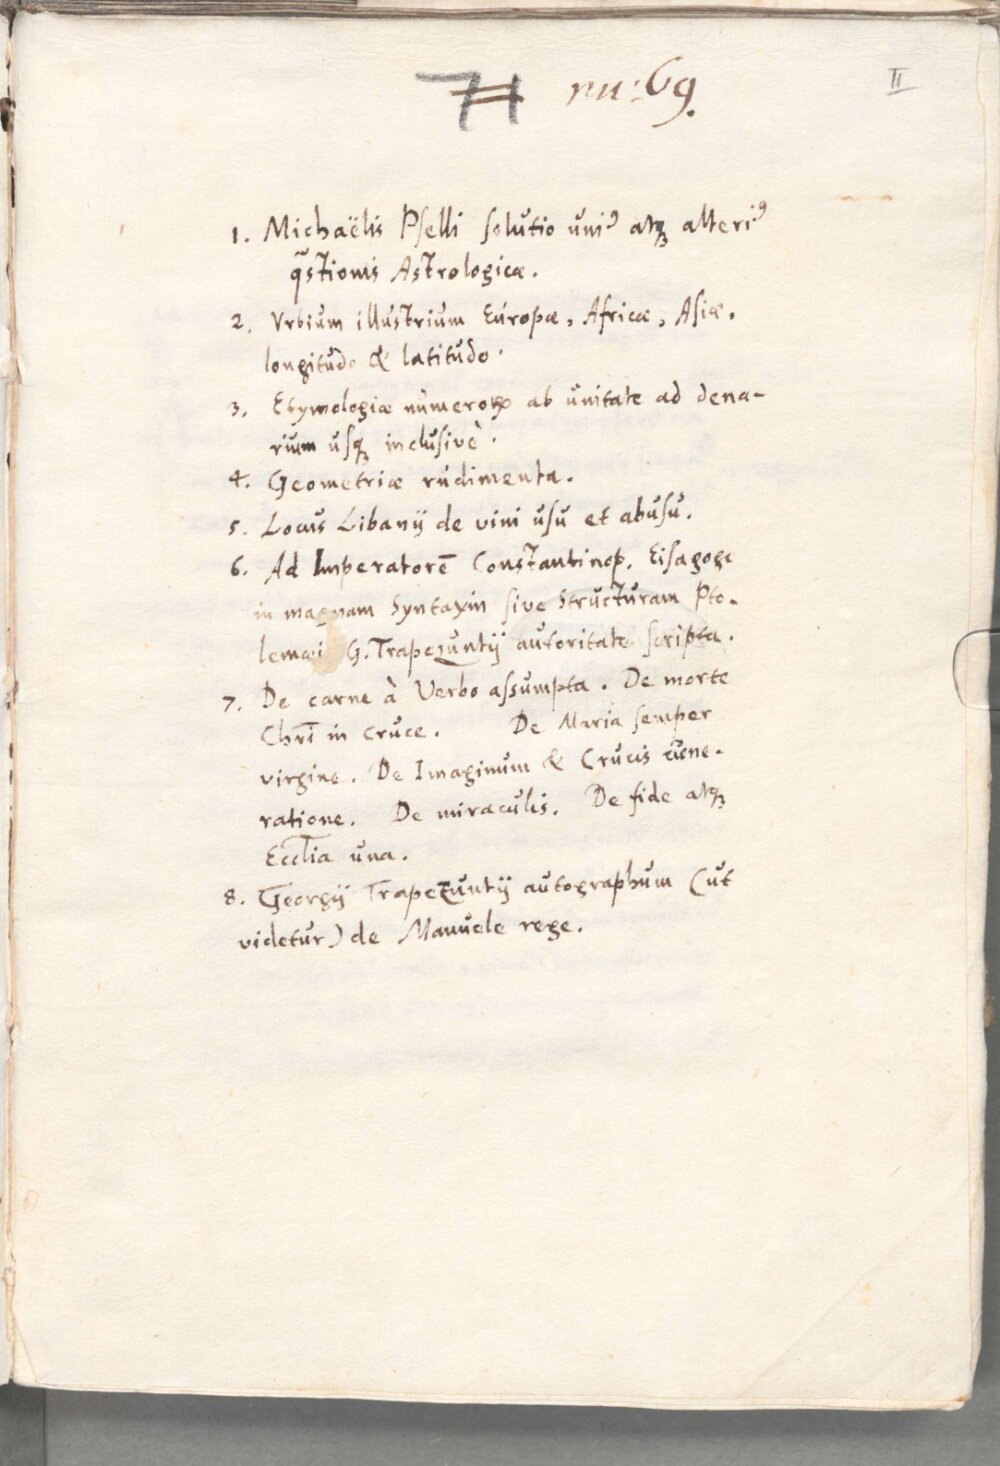 71 nu: 69.
II
1. Michaëlis Pselli solutio uniꝰ atqꝫ alteriꝰ
q̄stionis Astrologicæ.
2. Urbium illustrium Europæ, Africæ, Asiæ,
longitudo & latitudo.
3. Etymologiæ numeroꝝ ab unitate ad dena-
rium usqꝫ inclusivè.
4. Geometriæ rudimenta.
5. Locus Libanij de vini usu et abusu.
6. Ad Imperatorē Constantinop. Eisagoge
in magnam Syntaxin sive Structuram Pto-
lemæi G. Trapezuntij autoritate scripta.
7. De carne à Verbo assumpta. De morte
Chri̅ in cruce. De Maria semper
virgine. De Imaginum & Crucis vene-
ratione. De miraculis. De fide atqꝫ
Eccl̅ia una.
8. Georgij Trapezuntij autographum (ut
videtur) de Manuele rege.